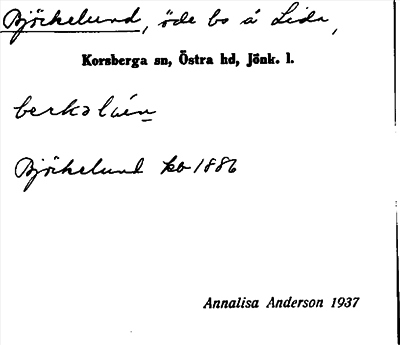 Björkelund, öde bo å Lida,
Korsberga sn, Östra hd, Jönk. l.
Björkelund kb 1886
Annalisa Anderson 1937